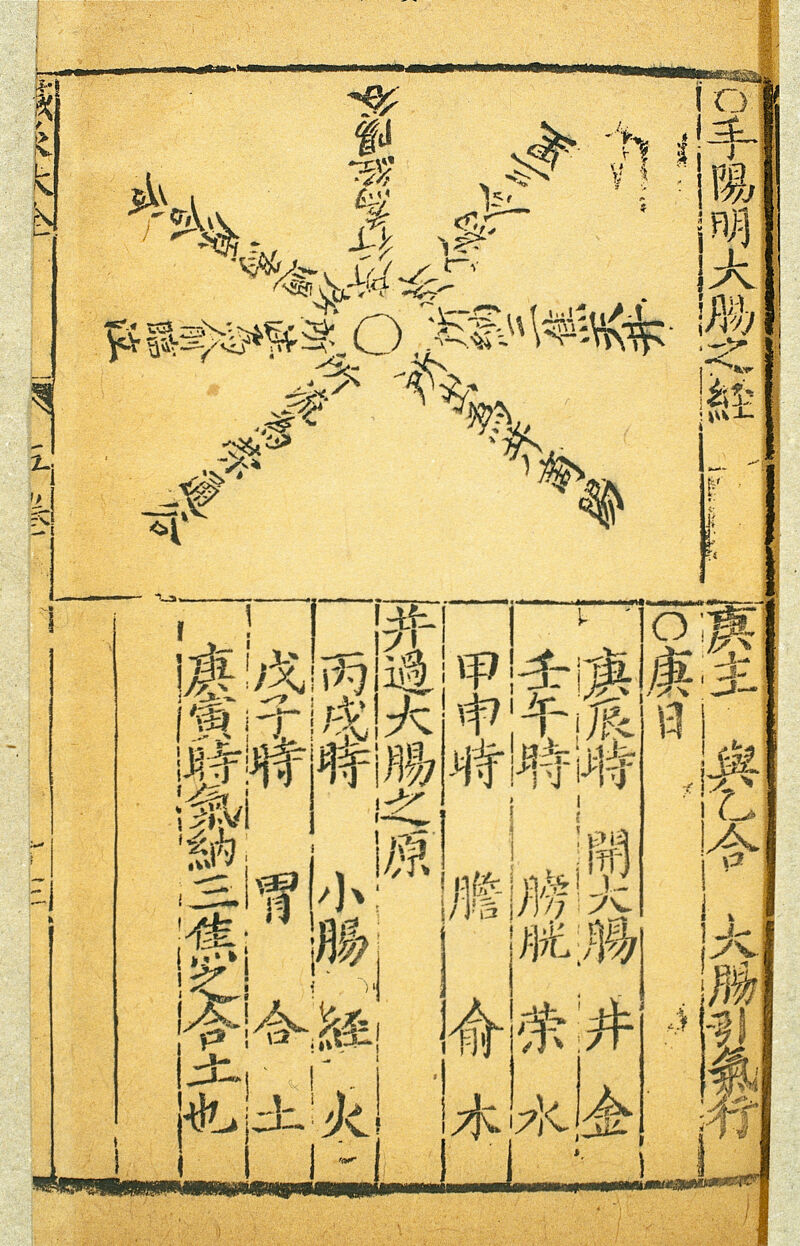 ○手陽明大腸之経
所行為経陽谷
所為合三里
所納三焦天井
所出為井商陽
所流為荣通谷
所注為俞臨泣
所過為原合谷
庚主 與乙合 大腸引氣行
○庚日
庚辰時 開大腸 井 金
壬午時 膀胱 荣 水
甲申時 膽 俞 木
并過大腸之原
丙戌時 小腸 経 火
戊子時 胃 合 土
庚寅時氣納三焦之合土也
大全
五卷